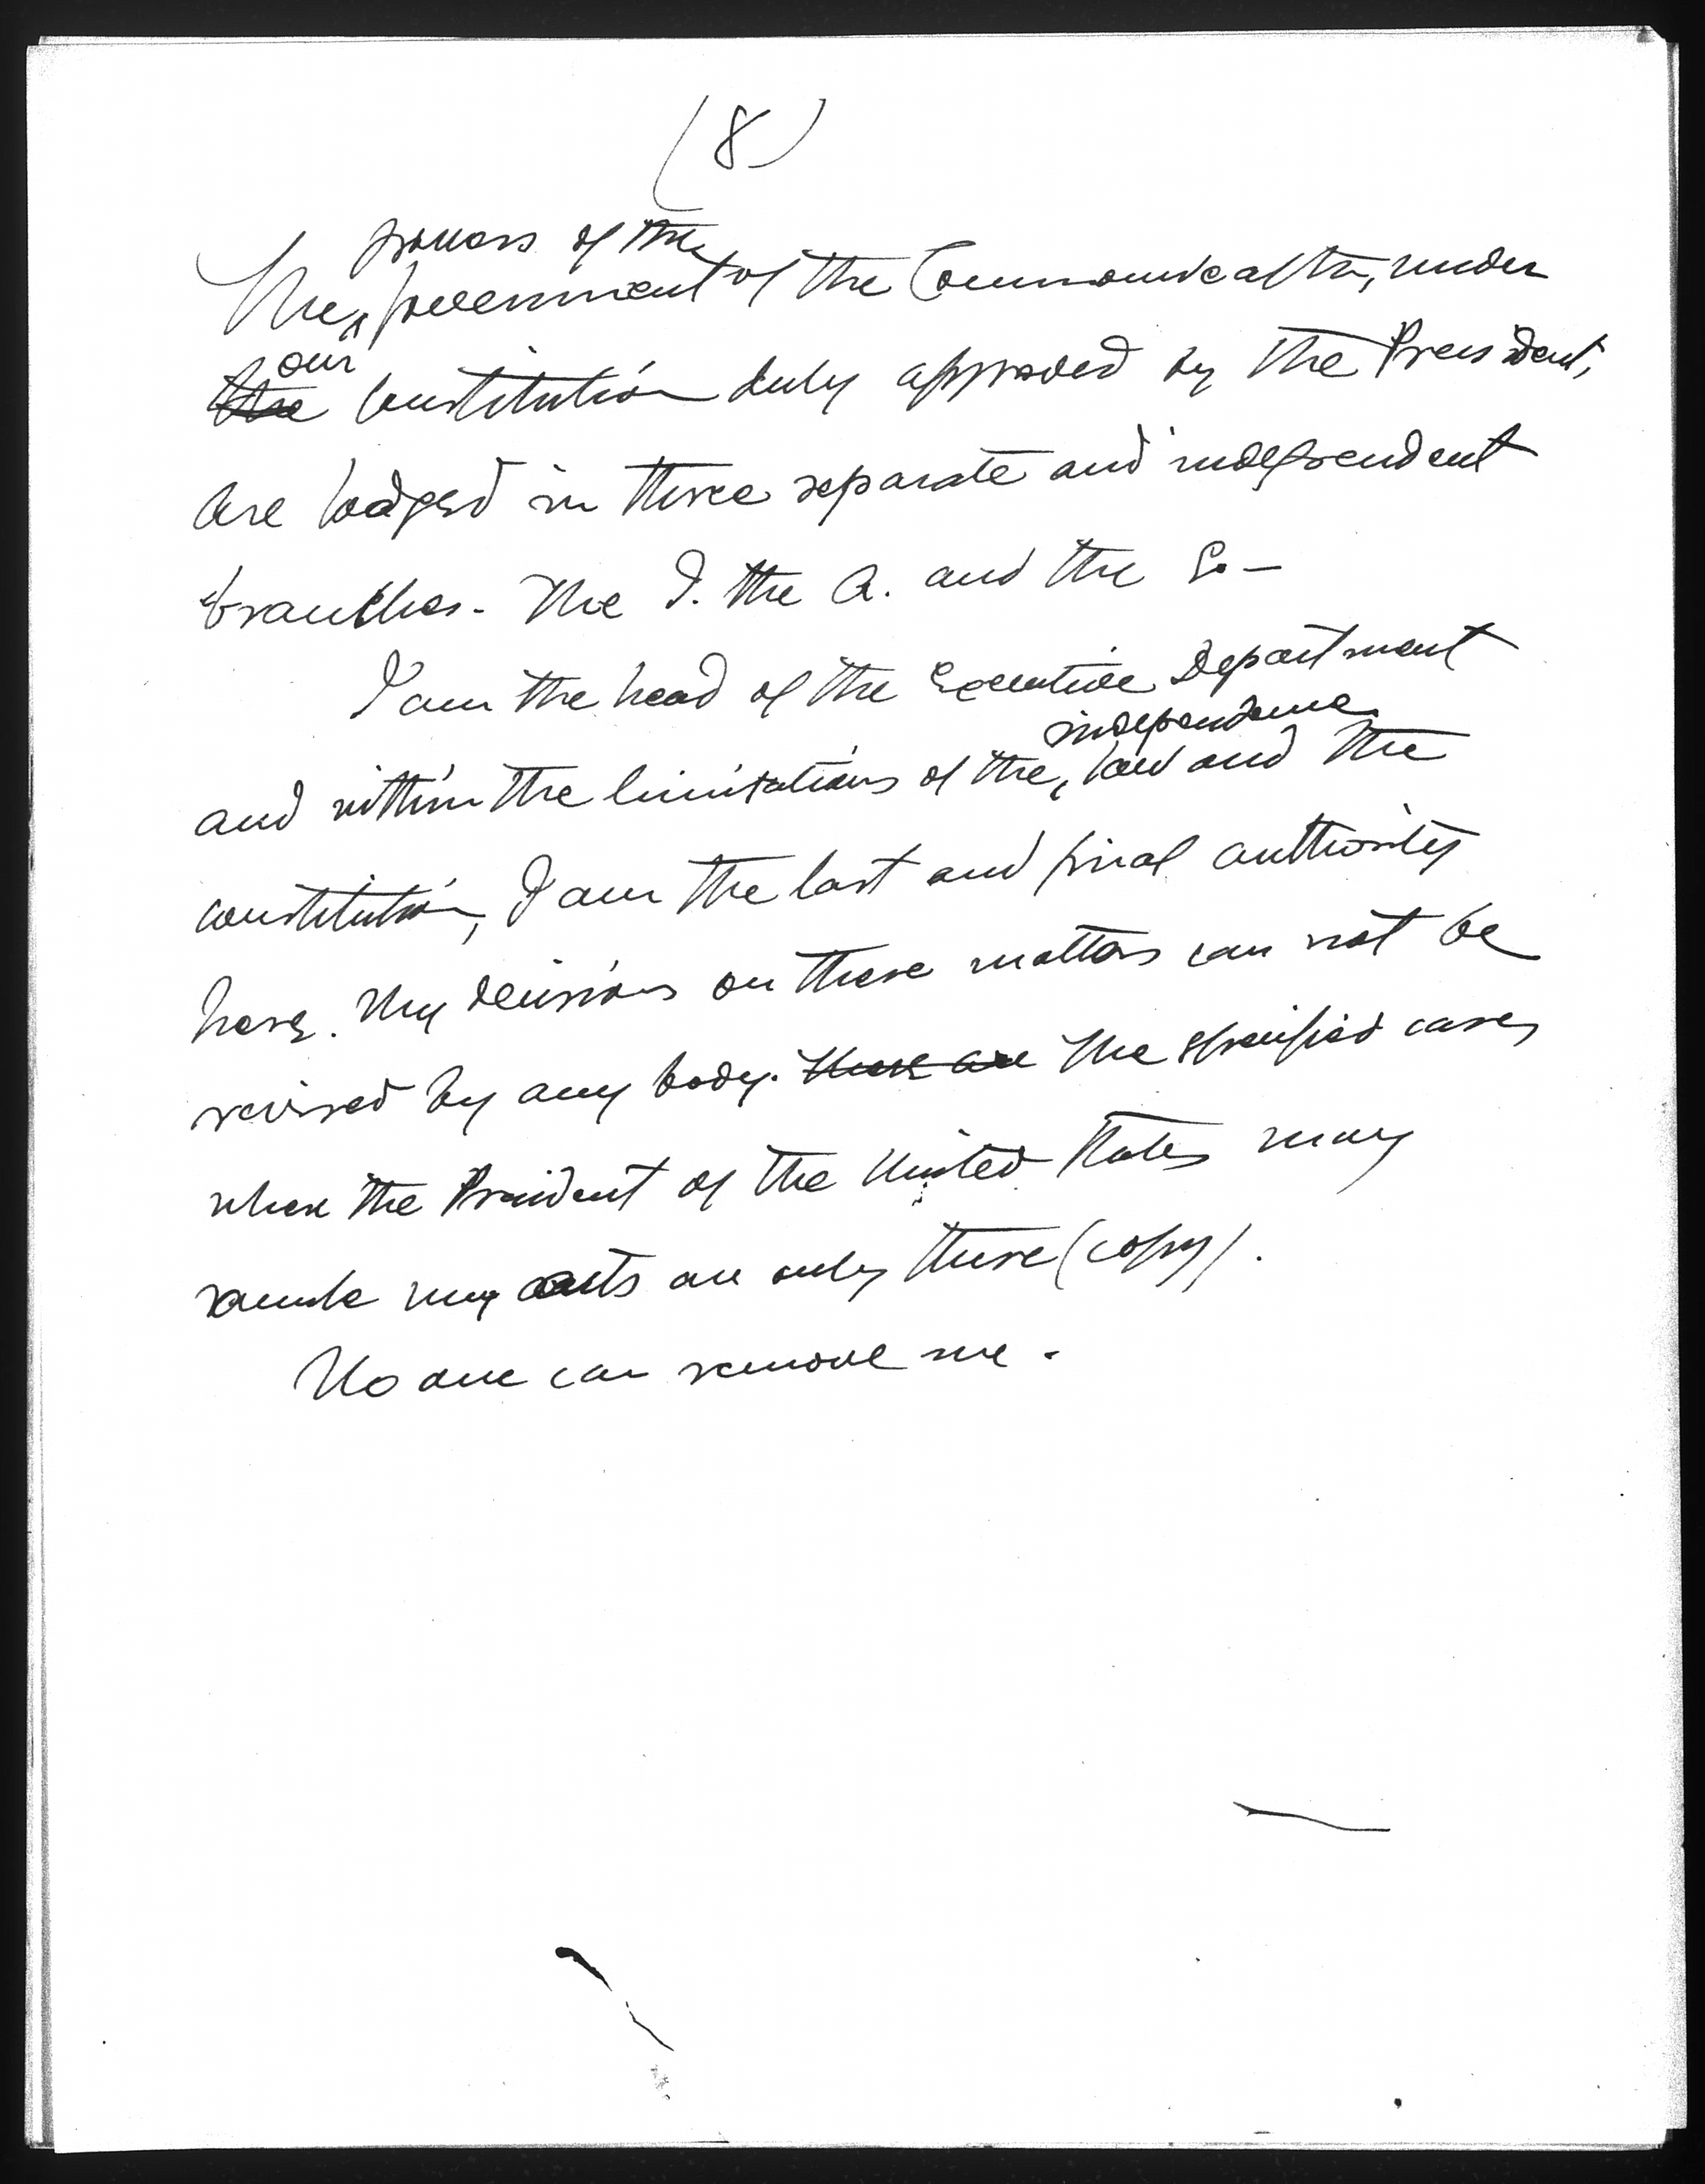 (8)
powers of the
The government of the Commonwealth, under
our
the Constitution duly approved by the President,
are lodged in three separate and independent
branches - The J. the A. and the E. -
I am the head of the Executive Department
independence
and within the limitations of the, law and the
constitution, I am the last and final authority
here. My decisions on these matters can not be
revised by any body. There are The specified cases
when the President of the United States may
my acts are only these (copy).
No one can remove me.